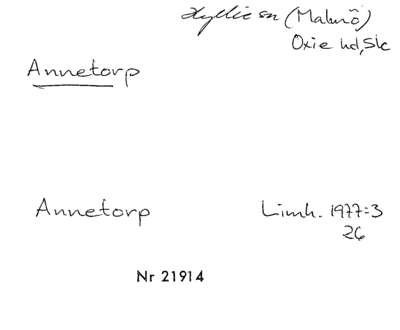 Hyllie sn (Malmö)
Oxie hd, Sk
Annetorp
Annetorp Limh. 1977:3
26
Nr 21914